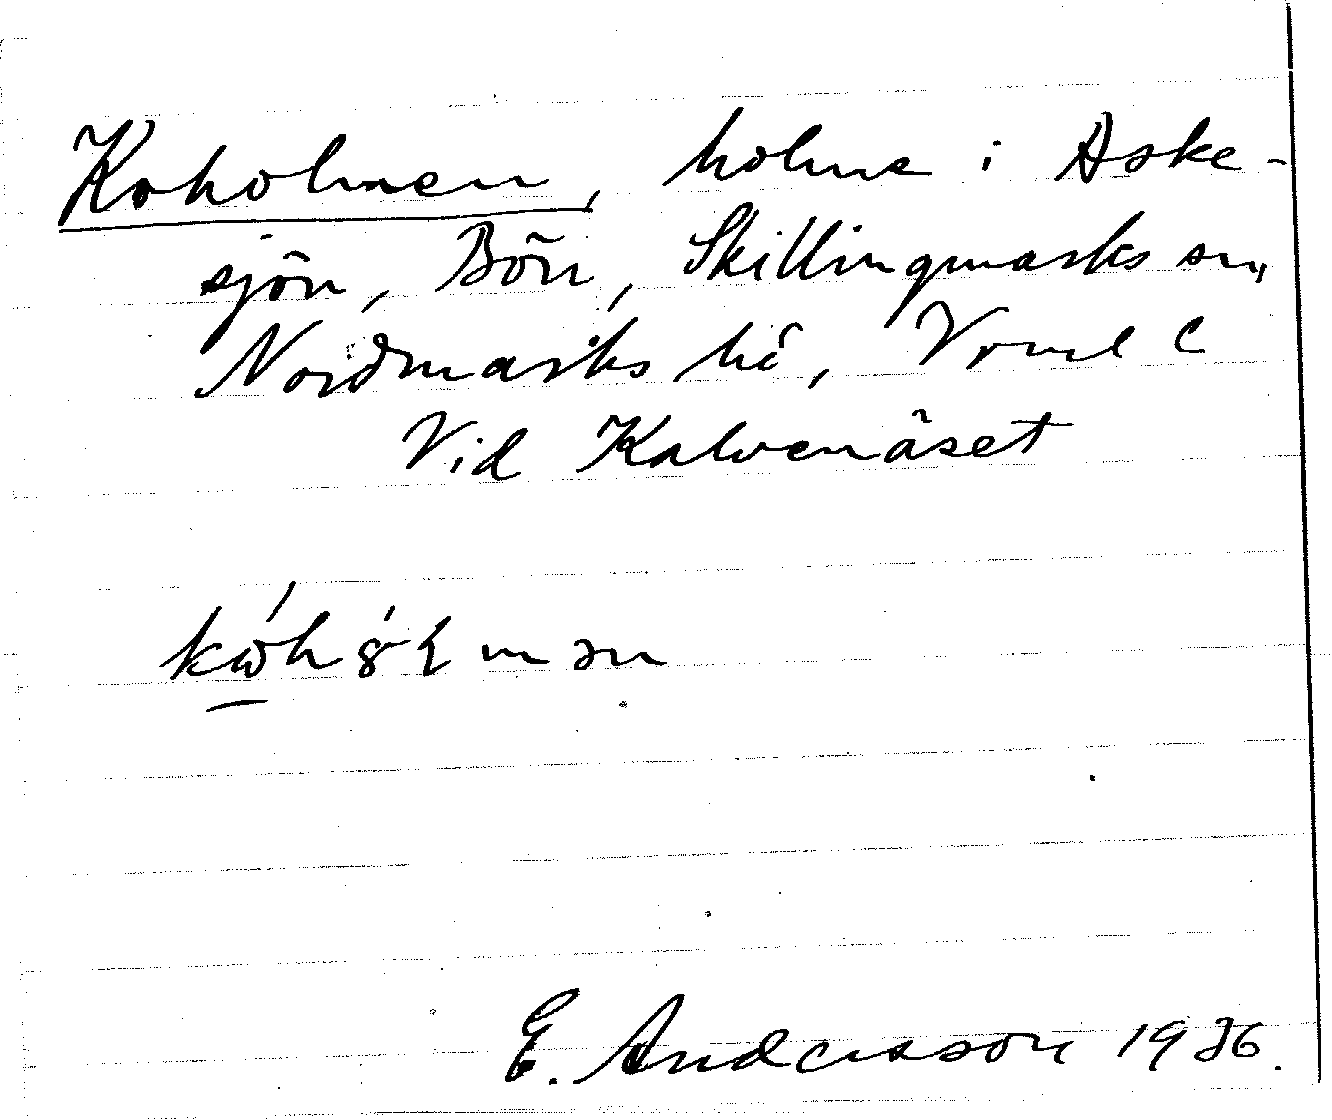 Koholmen, holme i Aske-
sjön, Bön, Skillingmarks sn,
Nordmarks hd, Vrml C
Vid Kalvenäset
E. Andersson 1936.